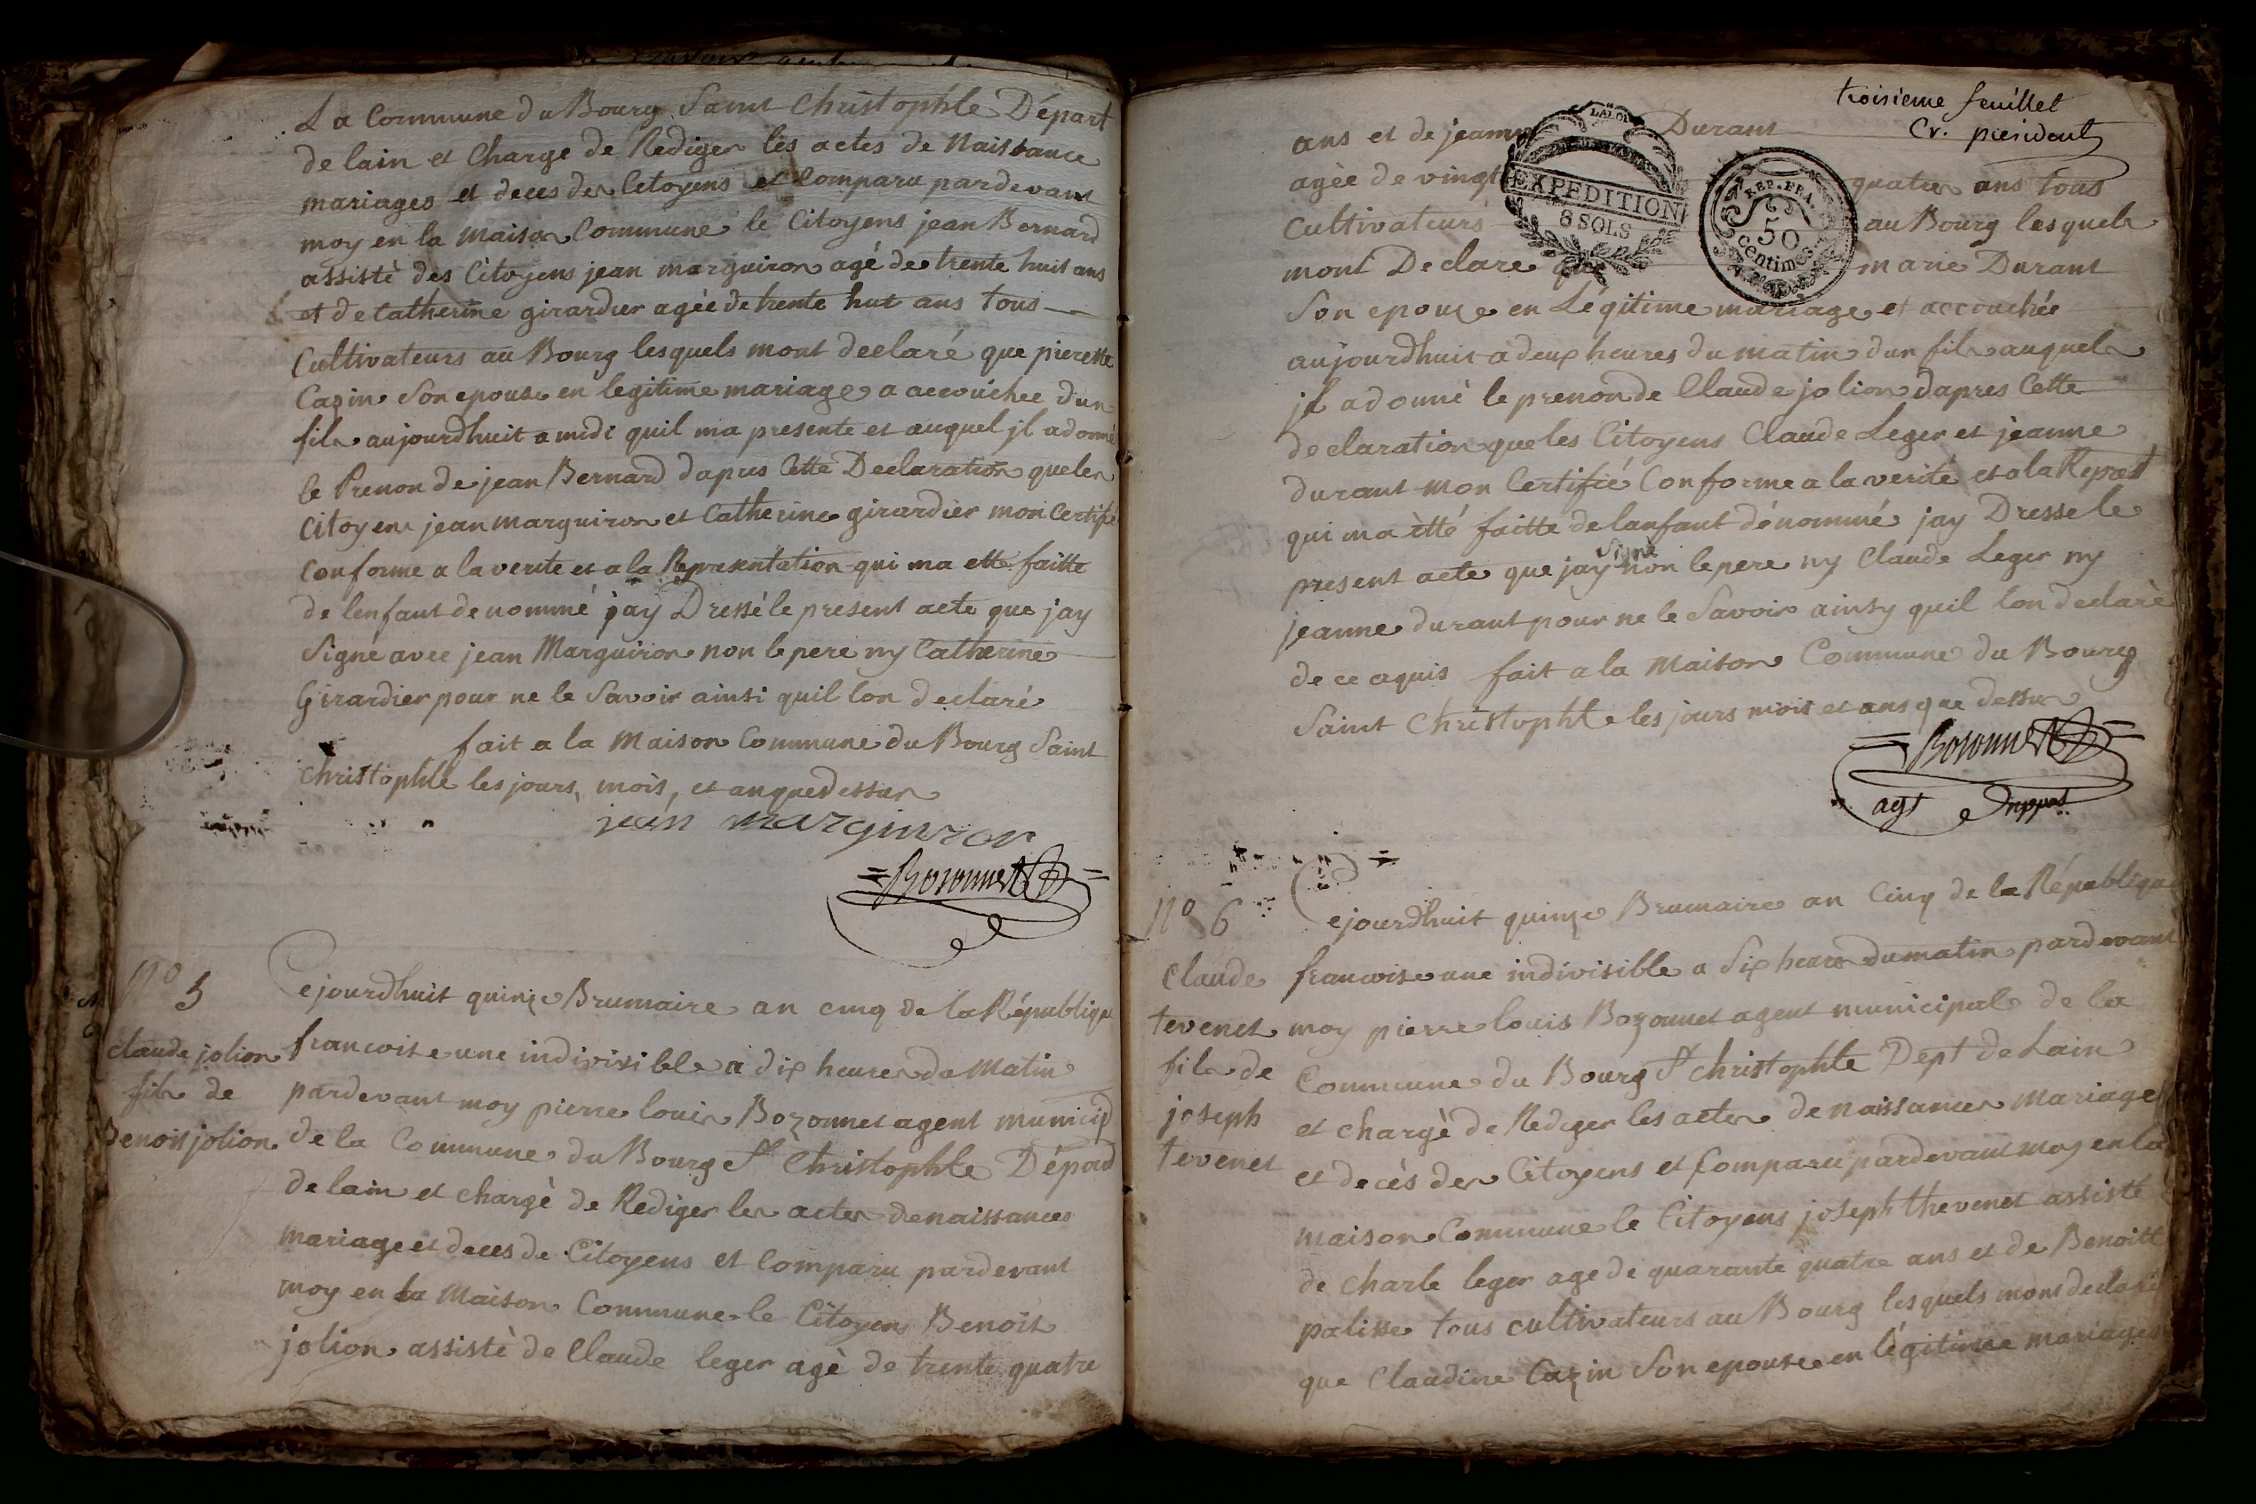 La Commune du Bourg Saint Christophle Départ
de lain et Charge de Rediger les actes de Naissance
mariages et deces des Citoyens et Comparu pardevant
moy en la maison Commune le Citoyens jean Bernard
assistè des Citoyens jean marguiron agé de trente huit ans
et de Catherine girardier agèe de trente hut ans tous
Cultivateurs au Bourg lesquels mont declaré que pierette
Cazin Son epouse en legitime mariage a accouchee dun
fils aujourdhuit a midi quil ma presente et auquel jl a donné
le Prenon de jean Bernard dapres Cette Declaration queles
Citoyens jean marguiron et Catherine girardier mon Certifié
Conforme a la verite et a la Representation qui ma etté faitte
de lenfant denommé jay Dressé le present acte que jay
Signé avec jean Marguiron non le pere ny Catherine
Girardier pour ne le Savoir ainsi quil lon declaré
fait a la Maison Commune du Bourg Saint
Christophle les jours, mois, et an que dessus
jean marguiron
Bozonnet
N° 5
claude jolion
fils de
Benoit jolion
Cejourdhuit quinze Brumaire an cinq de la République
francoise une indivisible a dix heures du Matin
pardevant moy pierre louis Bozonnet agent municip
de la Commune du Bourg St Christophle Dépard
de lain et chargè de Rediger les actes de naissances
mariage et deces de Citoyens et Comparu pardevant
moy en la Maison Commune le Citoyens Benoit
jolion assistè de Claude leger agè de trente quatre
troisieme feuillet
Cr. président
ans et de jeanne Durant
agèe de vingt quatre ans tous
Cultivateurs au Bourg lesquels
mont Declare que marie Durant
Son epouse en Légitime mariage et accouchée
aujourdhuit a deux heures du matin dun fils auquel
jl a donné le prenon de Claude jolion dapres Cette
declaration que les Citoyens Claude Leger et jeanne
durant mon Certifié Conforme a la verité et a la Repost
qui ma étté faitte de lanfant dénommé jay Dresse le
present acte que jay Signé non le pere ny Claude Leger ny
jeanne durant pour ne le Savoir ainsy quil lon declarè
de ce aquis fait a la Maison Commune du Bourg
Saint Christophle les jours mois et ans que dessus
Bozonnet
agt
LA LOI
EXPEDITION
8 SOLS
REP. FRA.
50
centimes
N° 6
Claude
tevenet
fils de
joseph
tevenet
Cejourdhuit quinze Brumaire an Cinq de la République
francoise une indivisible a Six heures du matin pardevant
moy pierre louis Bozonnet agent municipal de la
Commune du Bourg St christophle Dept de Lain
et chargè de Rediger les actes de naissances mariages
et decès des Citoyens et Comparu pardevant moy en la
maison Commune le Citoyens joseph thevenet assisté
de charle leger age de quarante quatre ans et de Benoitt
palisse tous cultivateurs au Bourg lesquels mont declaré
que Claudine Cazin Son epouse en légitime mariage